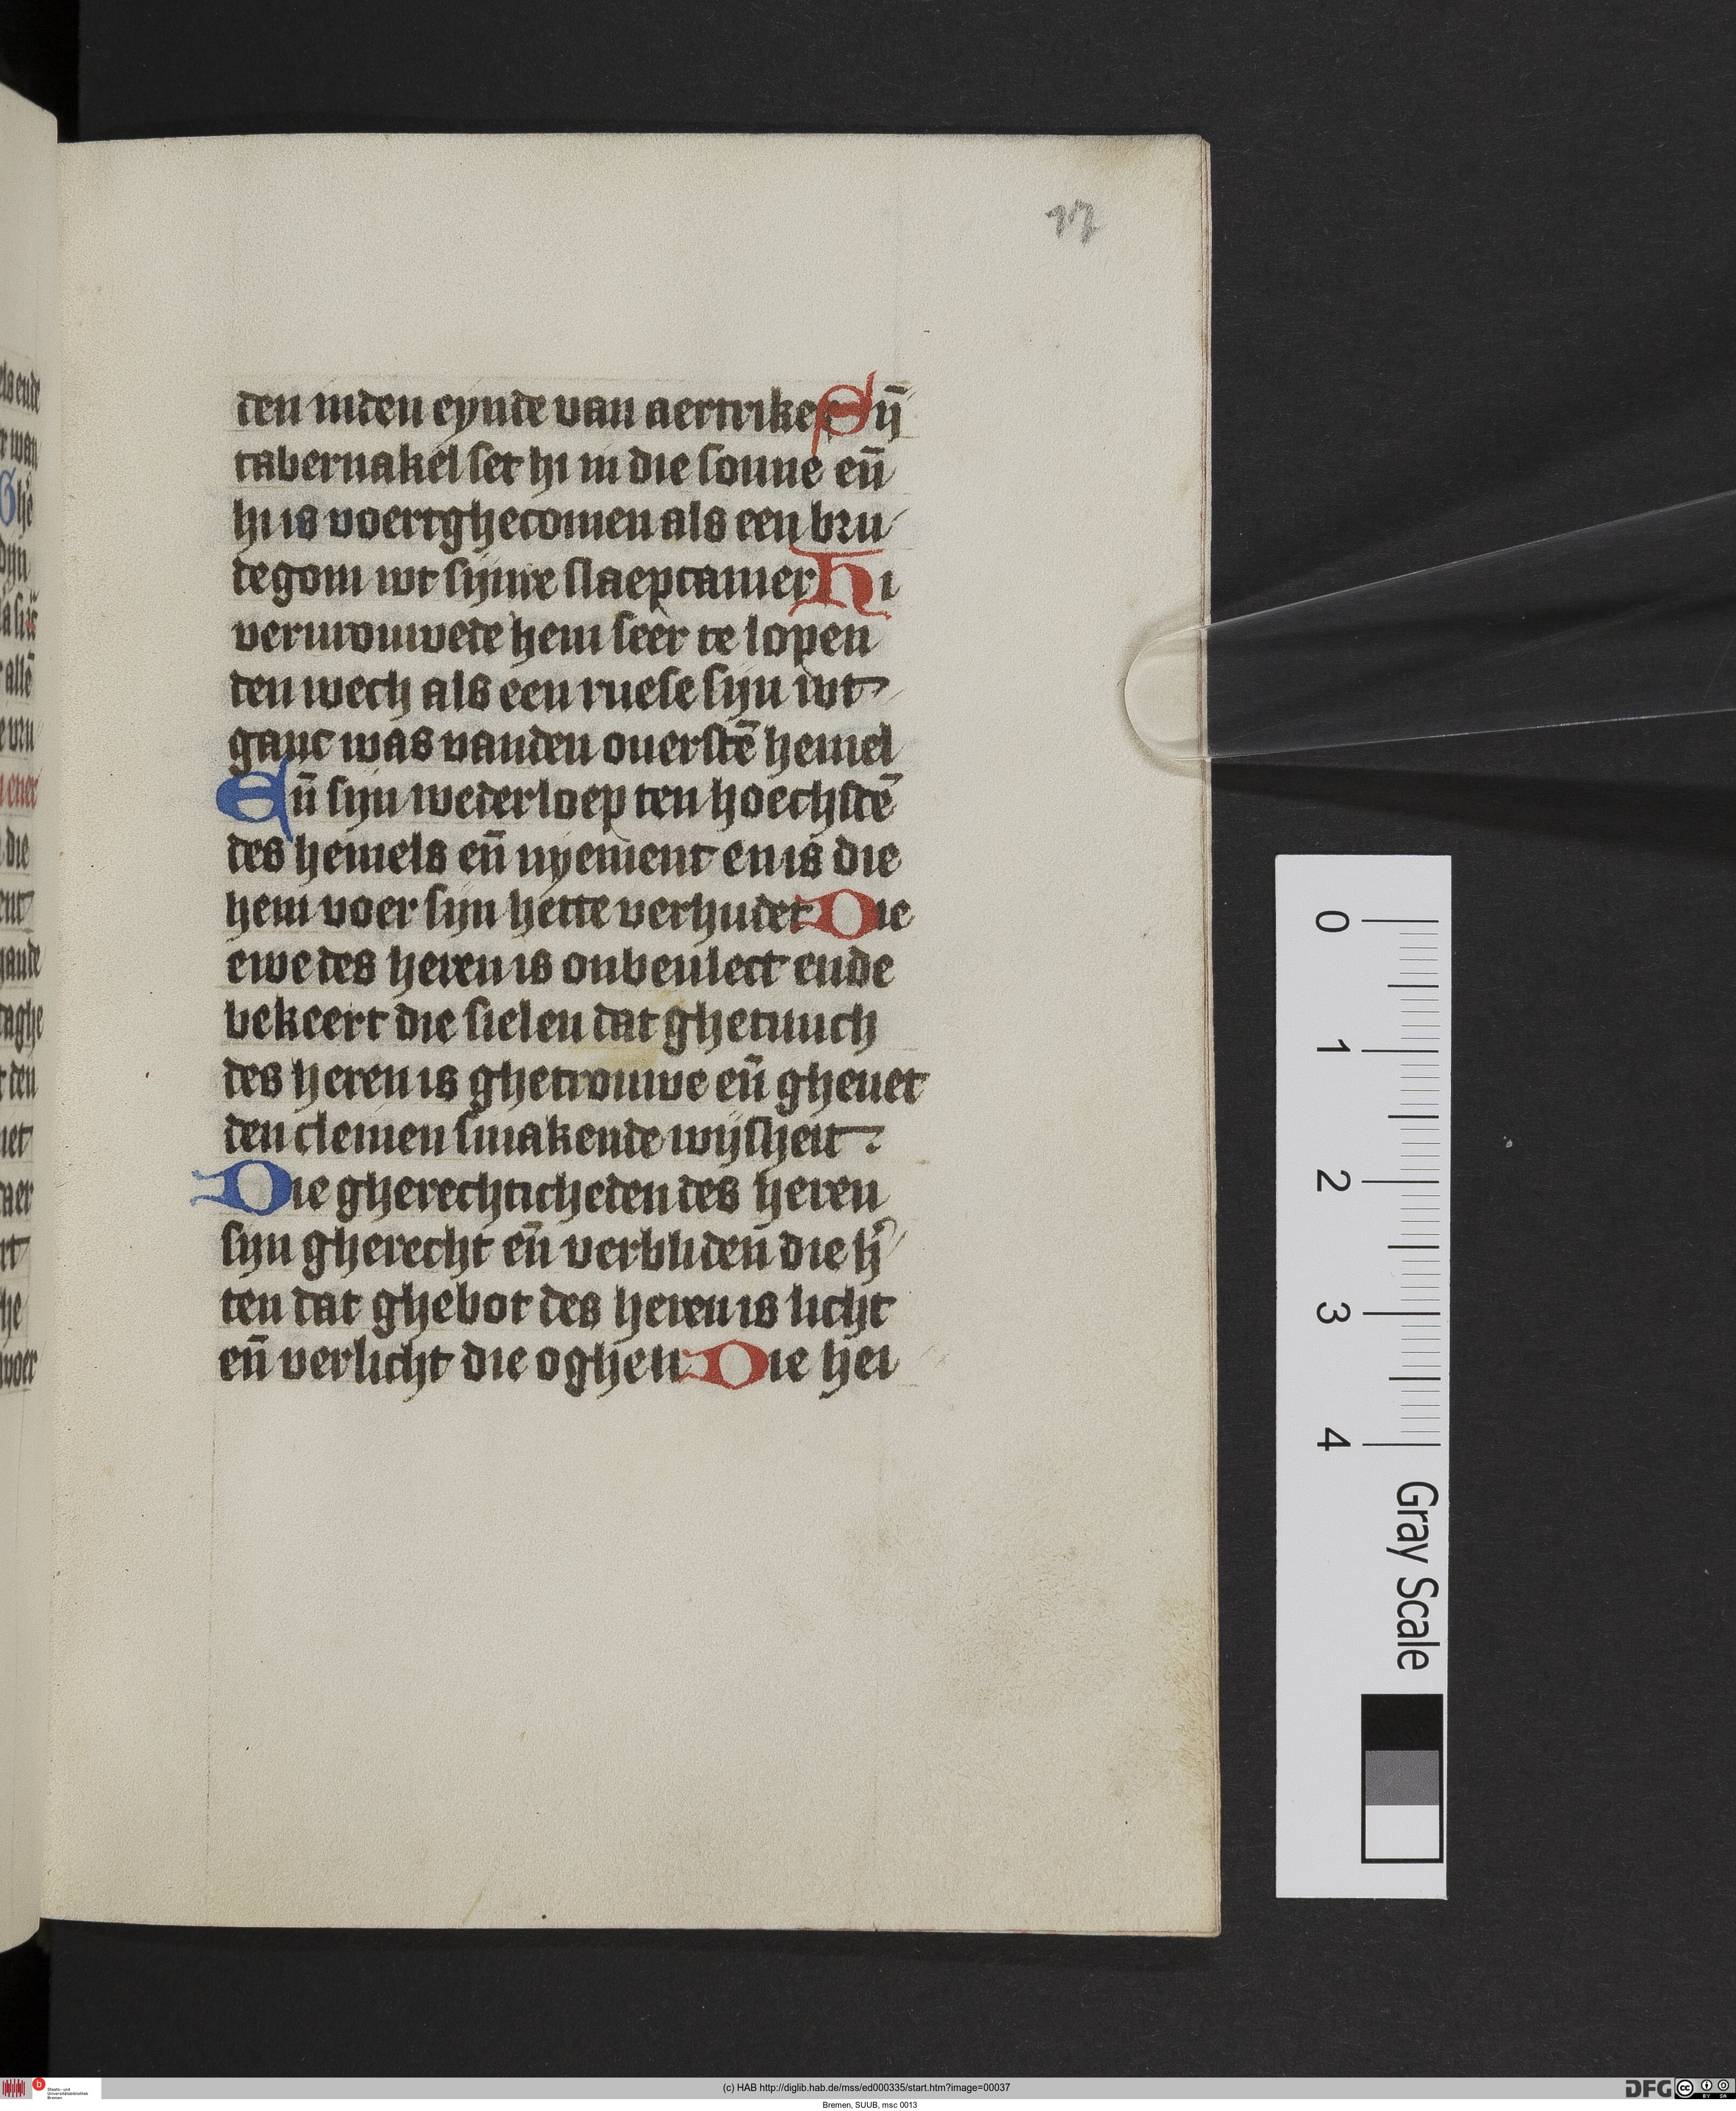 17
den inden eynde van aertrike Sij̄
tabernakel set hi in die sonne en̄
hi is voertghecomen als een bru
degom wt synre slaepcamer Hi
verurouwede hem seer te lopen
den wech als een ruese sijn wt
ganc was vanden ouerstē hemel
En̄ sijn wederloep ten hoechstē
des hemels en̄ nyement en is die
hem voer sijn hette verhudet Die
ewe des heren is onbeulect ende
bekeert die sielen dat ghetuuch
des heren is ghetrouwe en̄ gheuet
den clenien smakende wijsheit
Die gherechticheden des heren
sijn gherecht en̄ verbliden die h̾
ten dat ghebot des heren is licht
en̄ verlicht die oghen Die hei
0
1
2
3
4
Gray Scale
(c) HAB http://diglib.hab.de/mss/ed000335/start.htm?image=00037
Bremen, SUUB, msc 0013
Staats- und
Universitätsbibliothek
Bremen
DFG